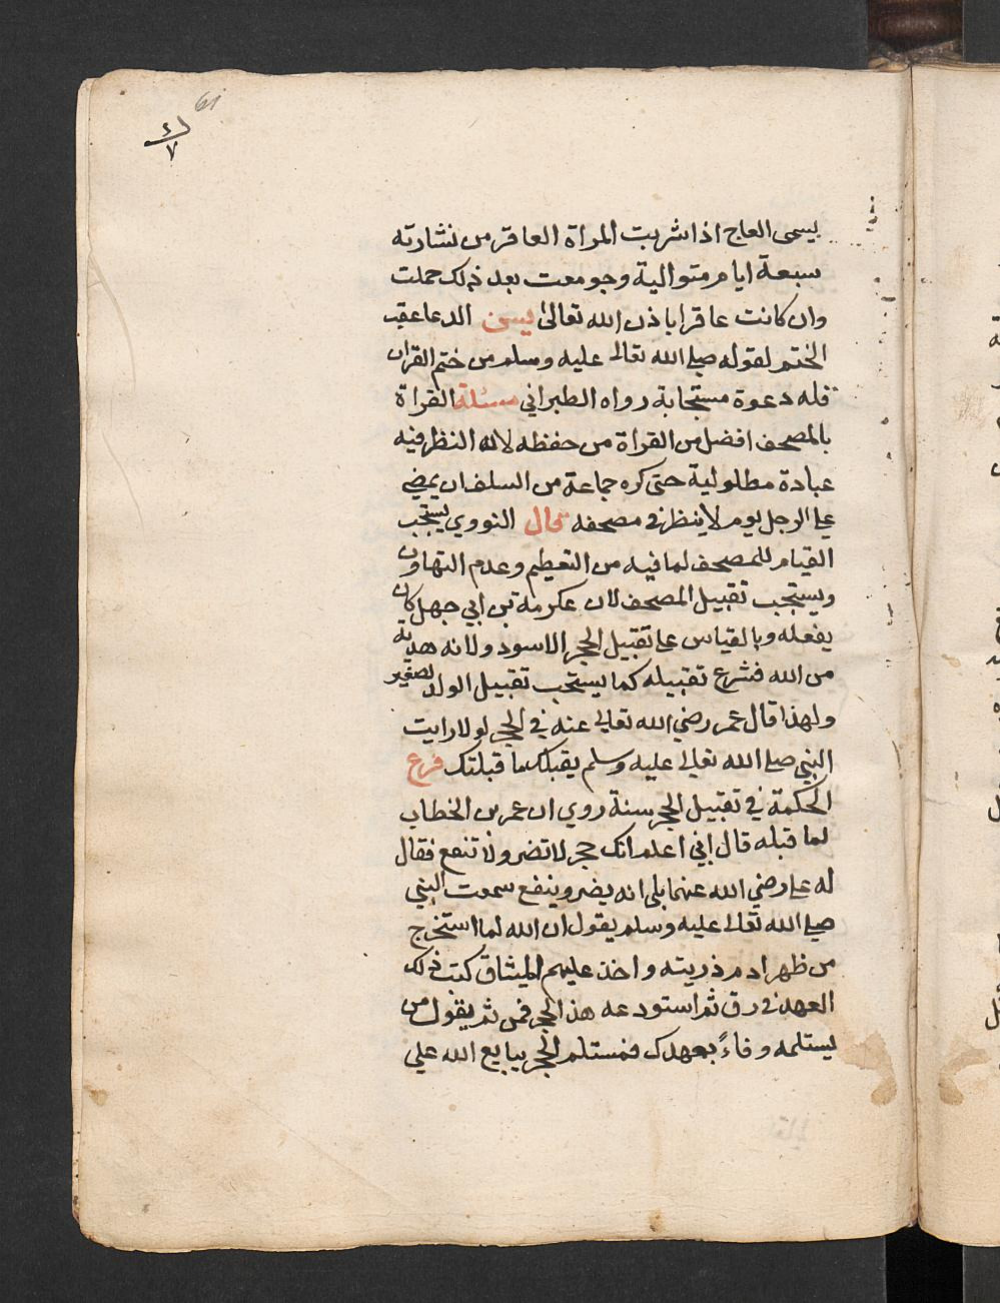 61
٤
٧
يسمى العاج اذا شربت المراة العاقر من نشارته
سبعة ايام متوالية وجومعت بعد ذلك حملت
وان كانت عاقرا باذن الله تعالى يسن الدعا عقب
الختم لقوله صلى الله تعالى عليه وسلم من ختم القران
فله دعوة مستجابة رواه الطبراني مسئلة القراة
بالمصحف افضل من القراة من حفظه لان النظر فيه
عبادة مطلوبة حتى كره جماعة من السلف ان يمضي
على الرجل يوم لا ينظر في مصحفه قال النووي يستحب
القيام للمصحف لما فيه من التعظيم وعدم التهاون
ويستحب تقبيل المصحف لان عكرمة بن ابي جهل كان
يفعله وبالقياس على تقبيل الحجر الاسود ولانه هدية
من الله فشرع تقبيله كما يستحب تقبيل الولد لصغير
ولهذا قال عمر رضي الله تعالى عنه في الحجر لولا رايت
النبي صلى الله تعالى عليه وسلم يقبلك ما قبلتك فرع
الحكمة في تقبيل الحجر سنة روي ان عمر بن الخطاب
لما قبله قال اني اعلم انك حجر لا تضر ولا تنفع فقال
له علي رضي الله عنهما بلى انه يضر وينفع سمعت النبي
صلى الله تعالى عليه وسلم يقول ان الله لما استخرج
من ظهر ادم ذريته واخذ عليهم الميثاق كتب ذلك
العهد في رق ثم استودعه هذا الحجر فمن ثم يقول من
يستلمه وفاءً بعهدك فمستلم الحجر يبايع الله على